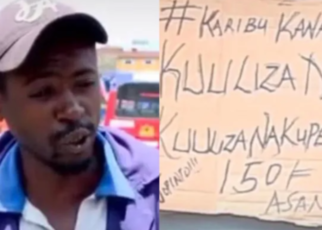 #KARIBU KANA
KUULIZA N
KUULIZA NAKUPE
150F
ASAN